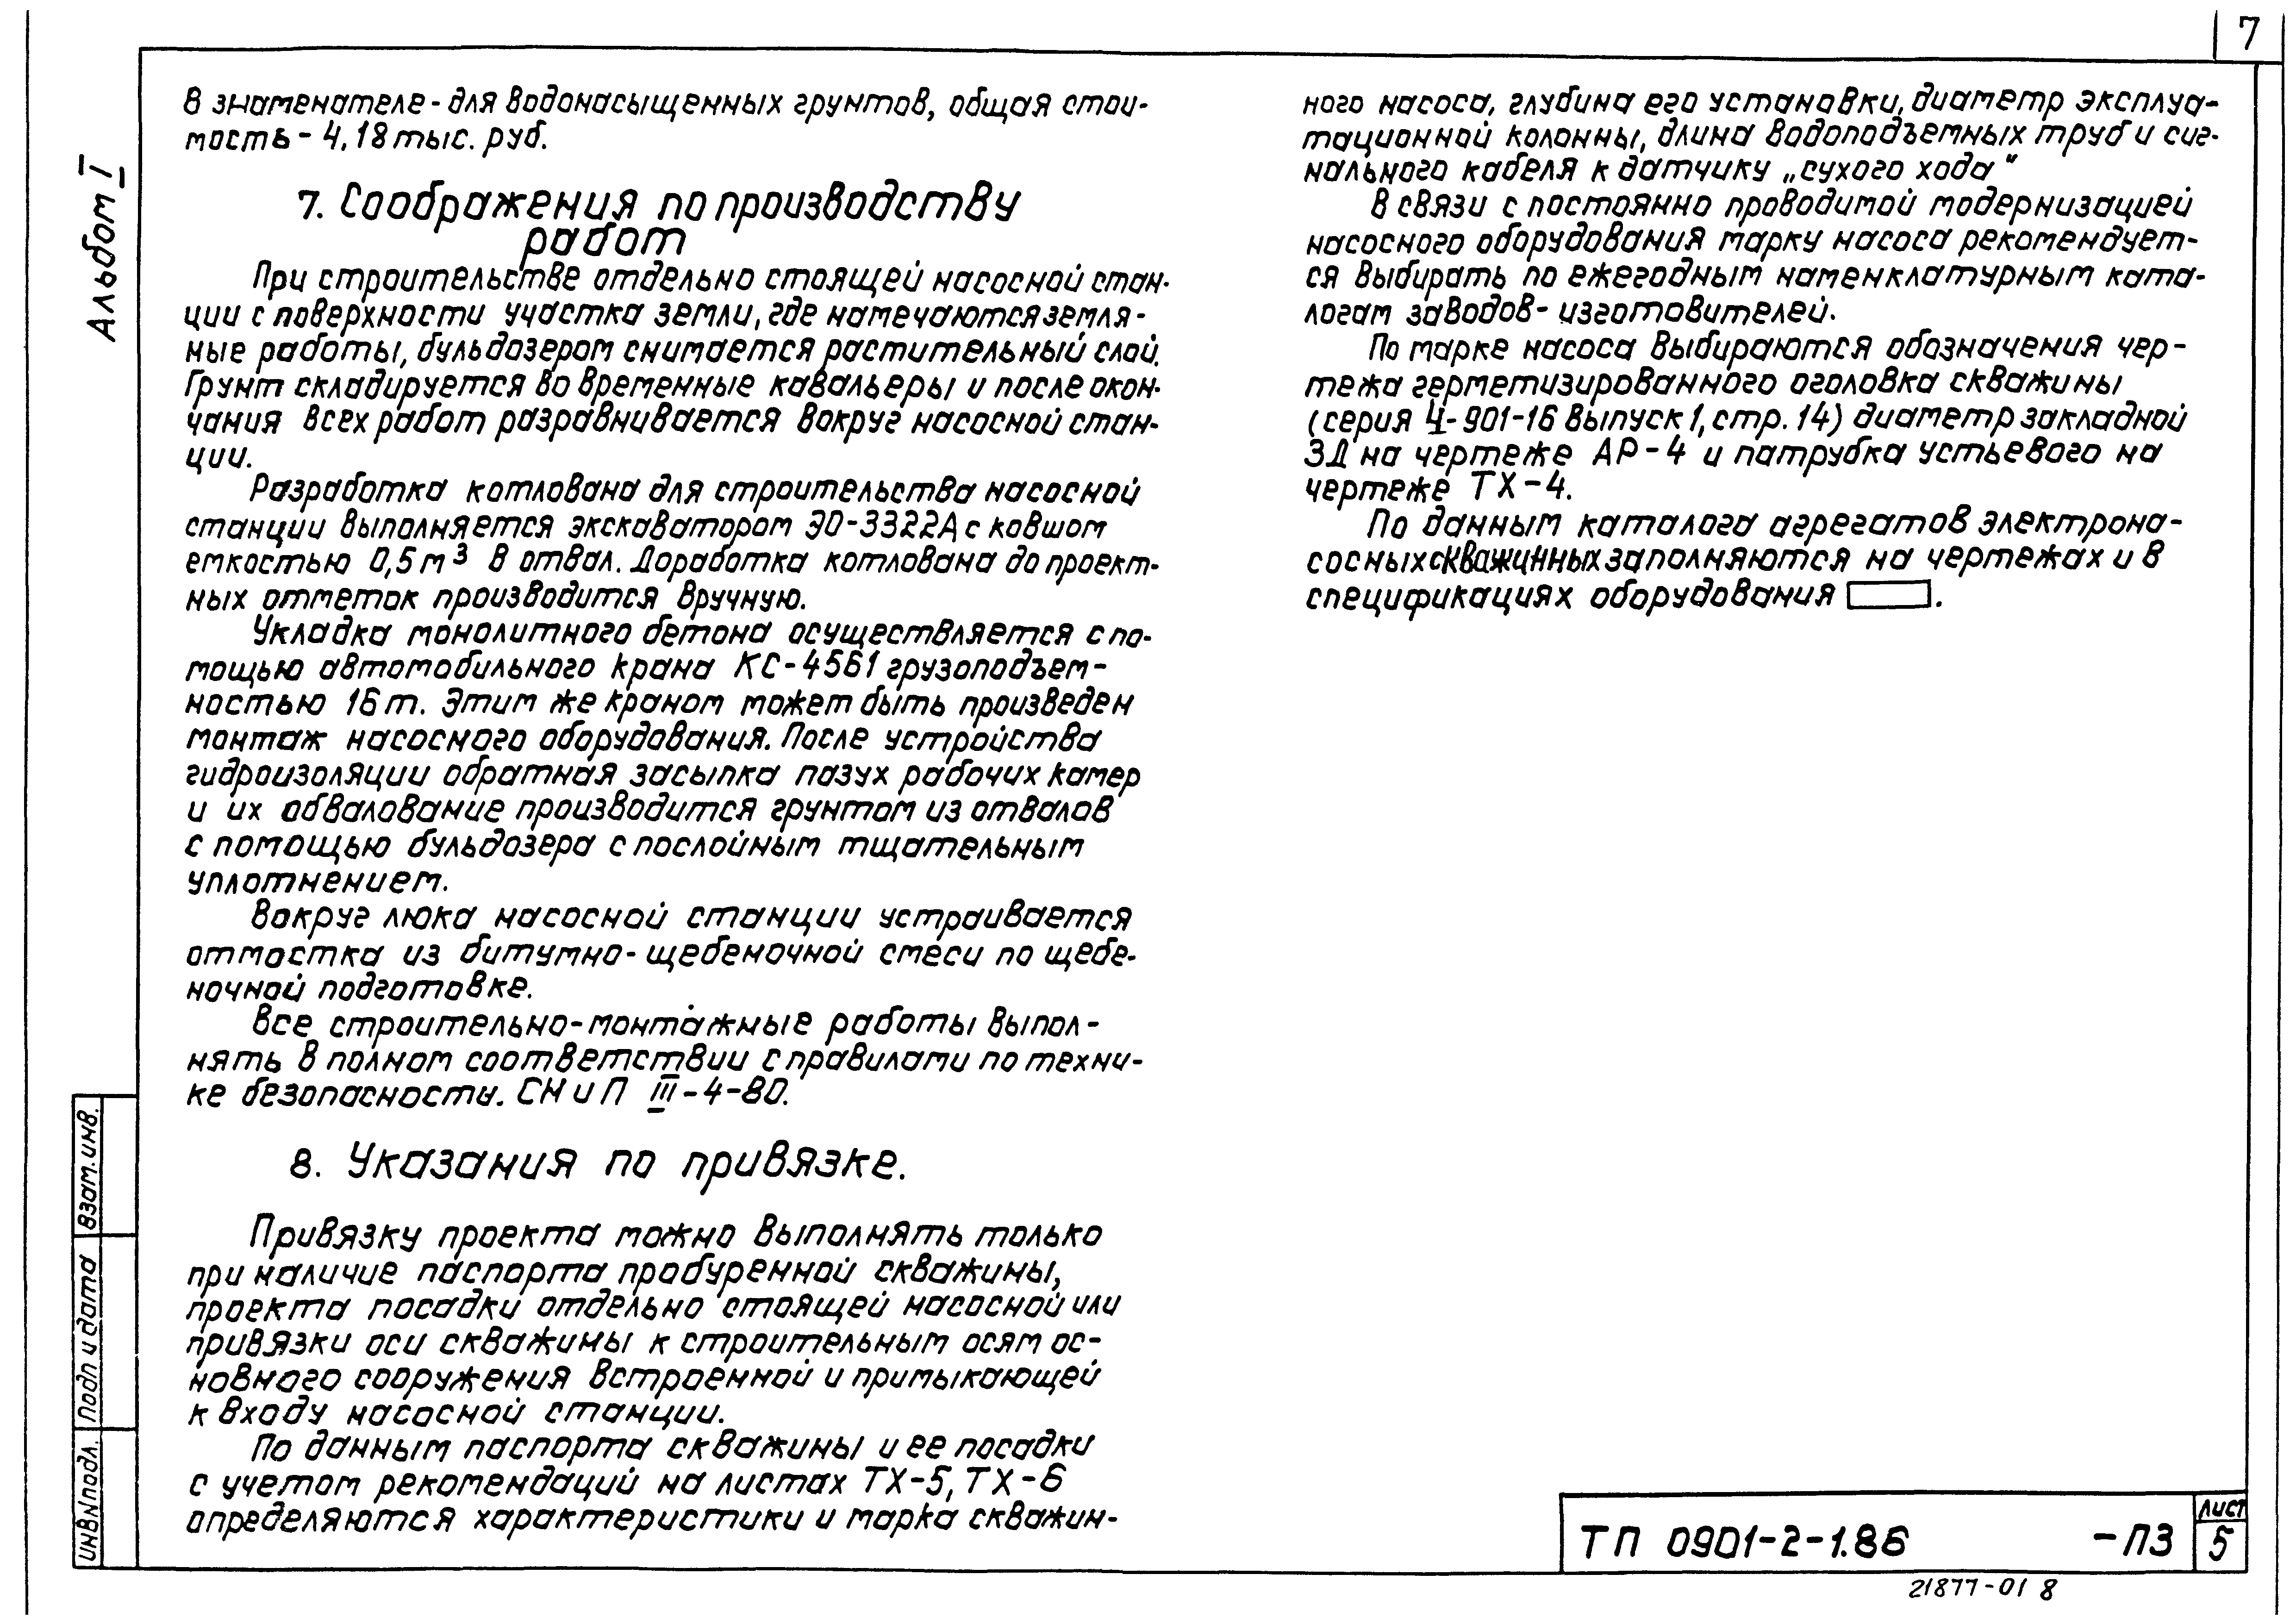 7
Альбом I
В знаменателе - для водонасыщенных грунтов, общая стои-
мость - 4,18 тыс. руб.
7. Соображения по производству
работ
При строительстве отдельно стоящей насосной стан-
ции с поверхности участка земли, где намечаются земля-
ные работы, бульдозером снимается растительный слой.
Грунт складируется во временные кавальеры и после окон-
чания всех работ разравнивается вокруг насосной стан-
ции.
Разработка котлована для строительства насосной
станции выполняется экскаватором ЭО-3322А с ковшом
емкостью 0,5 м³ в отвал. Доработка котлована до проект-
ных отметок производится вручную.
Укладка монолитного бетона осуществляется с по-
мощью автомобильного крана КС-4561 грузоподъем-
ностью 16 т. Этим же краном может быть произведен
монтаж насосного оборудования. После устройства
гидроизоляции обратная засыпка пазух рабочих камер
и их обвалование производится грунтом из отвалов
с помощью бульдозера с послойным тщательным
уплотнением.
Вокруг люка насосной станции устраивается
отмостка из битумно-щебеночной смеси по щебе-
ночной подготовке.
Все строительно-монтажные работы выпол-
нять в полном соответствии с правилами по техни-
ке безопасности. СН и П III-4-80.
8. Указания по привязке.
Привязку проекта можно выполнять только
при наличие паспорта пробуренной скважины,
проекта посадки отдельно стоящей насосной или
привязки оси скважины к строительным осям ос-
новного сооружения встроенной и примыкающей
к входу насосной станции.
По данным паспорта скважины и ее посадки
с учетом рекомендаций на листах ТХ-5, ТХ-6
определяются характеристики и марка скважин-
ного насоса, глубина его установки, диаметр эксплуа-
тационной колонны, длина водоподъемных труб и сиг-
нального кабеля к датчику „сухого хода"
В связи с постоянно проводимой модернизацией
насосного оборудования марку насоса рекомендует-
ся выбирать по ежегодным номенклатурным ката-
логам заводов-изготовителей.
По марке насоса выбираются обозначения чер-
тежа герметизированного оголовка скважины
(серия 4-901-16 выпуск 1, стр. 14) диаметр закладной
ЗД на чертеже АР-4 и патрубка устьевого на
чертеже ТХ-4.
По данным каталога агрегатов электрона-
сосных скважинных заполняются на чертежах и в
спецификациях оборудования .
Взам. инв.
Подп и дата
Инв N подл.
ТП 0901-2-1.86 -ПЗ
Лист
5
21877-01 8